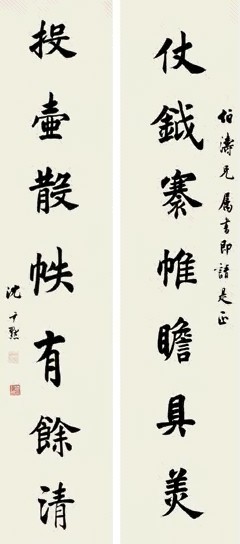 伯濤兄属書即請是正
仗鉞褰帷瞻具美
投壺散帙有餘清
沈尹默